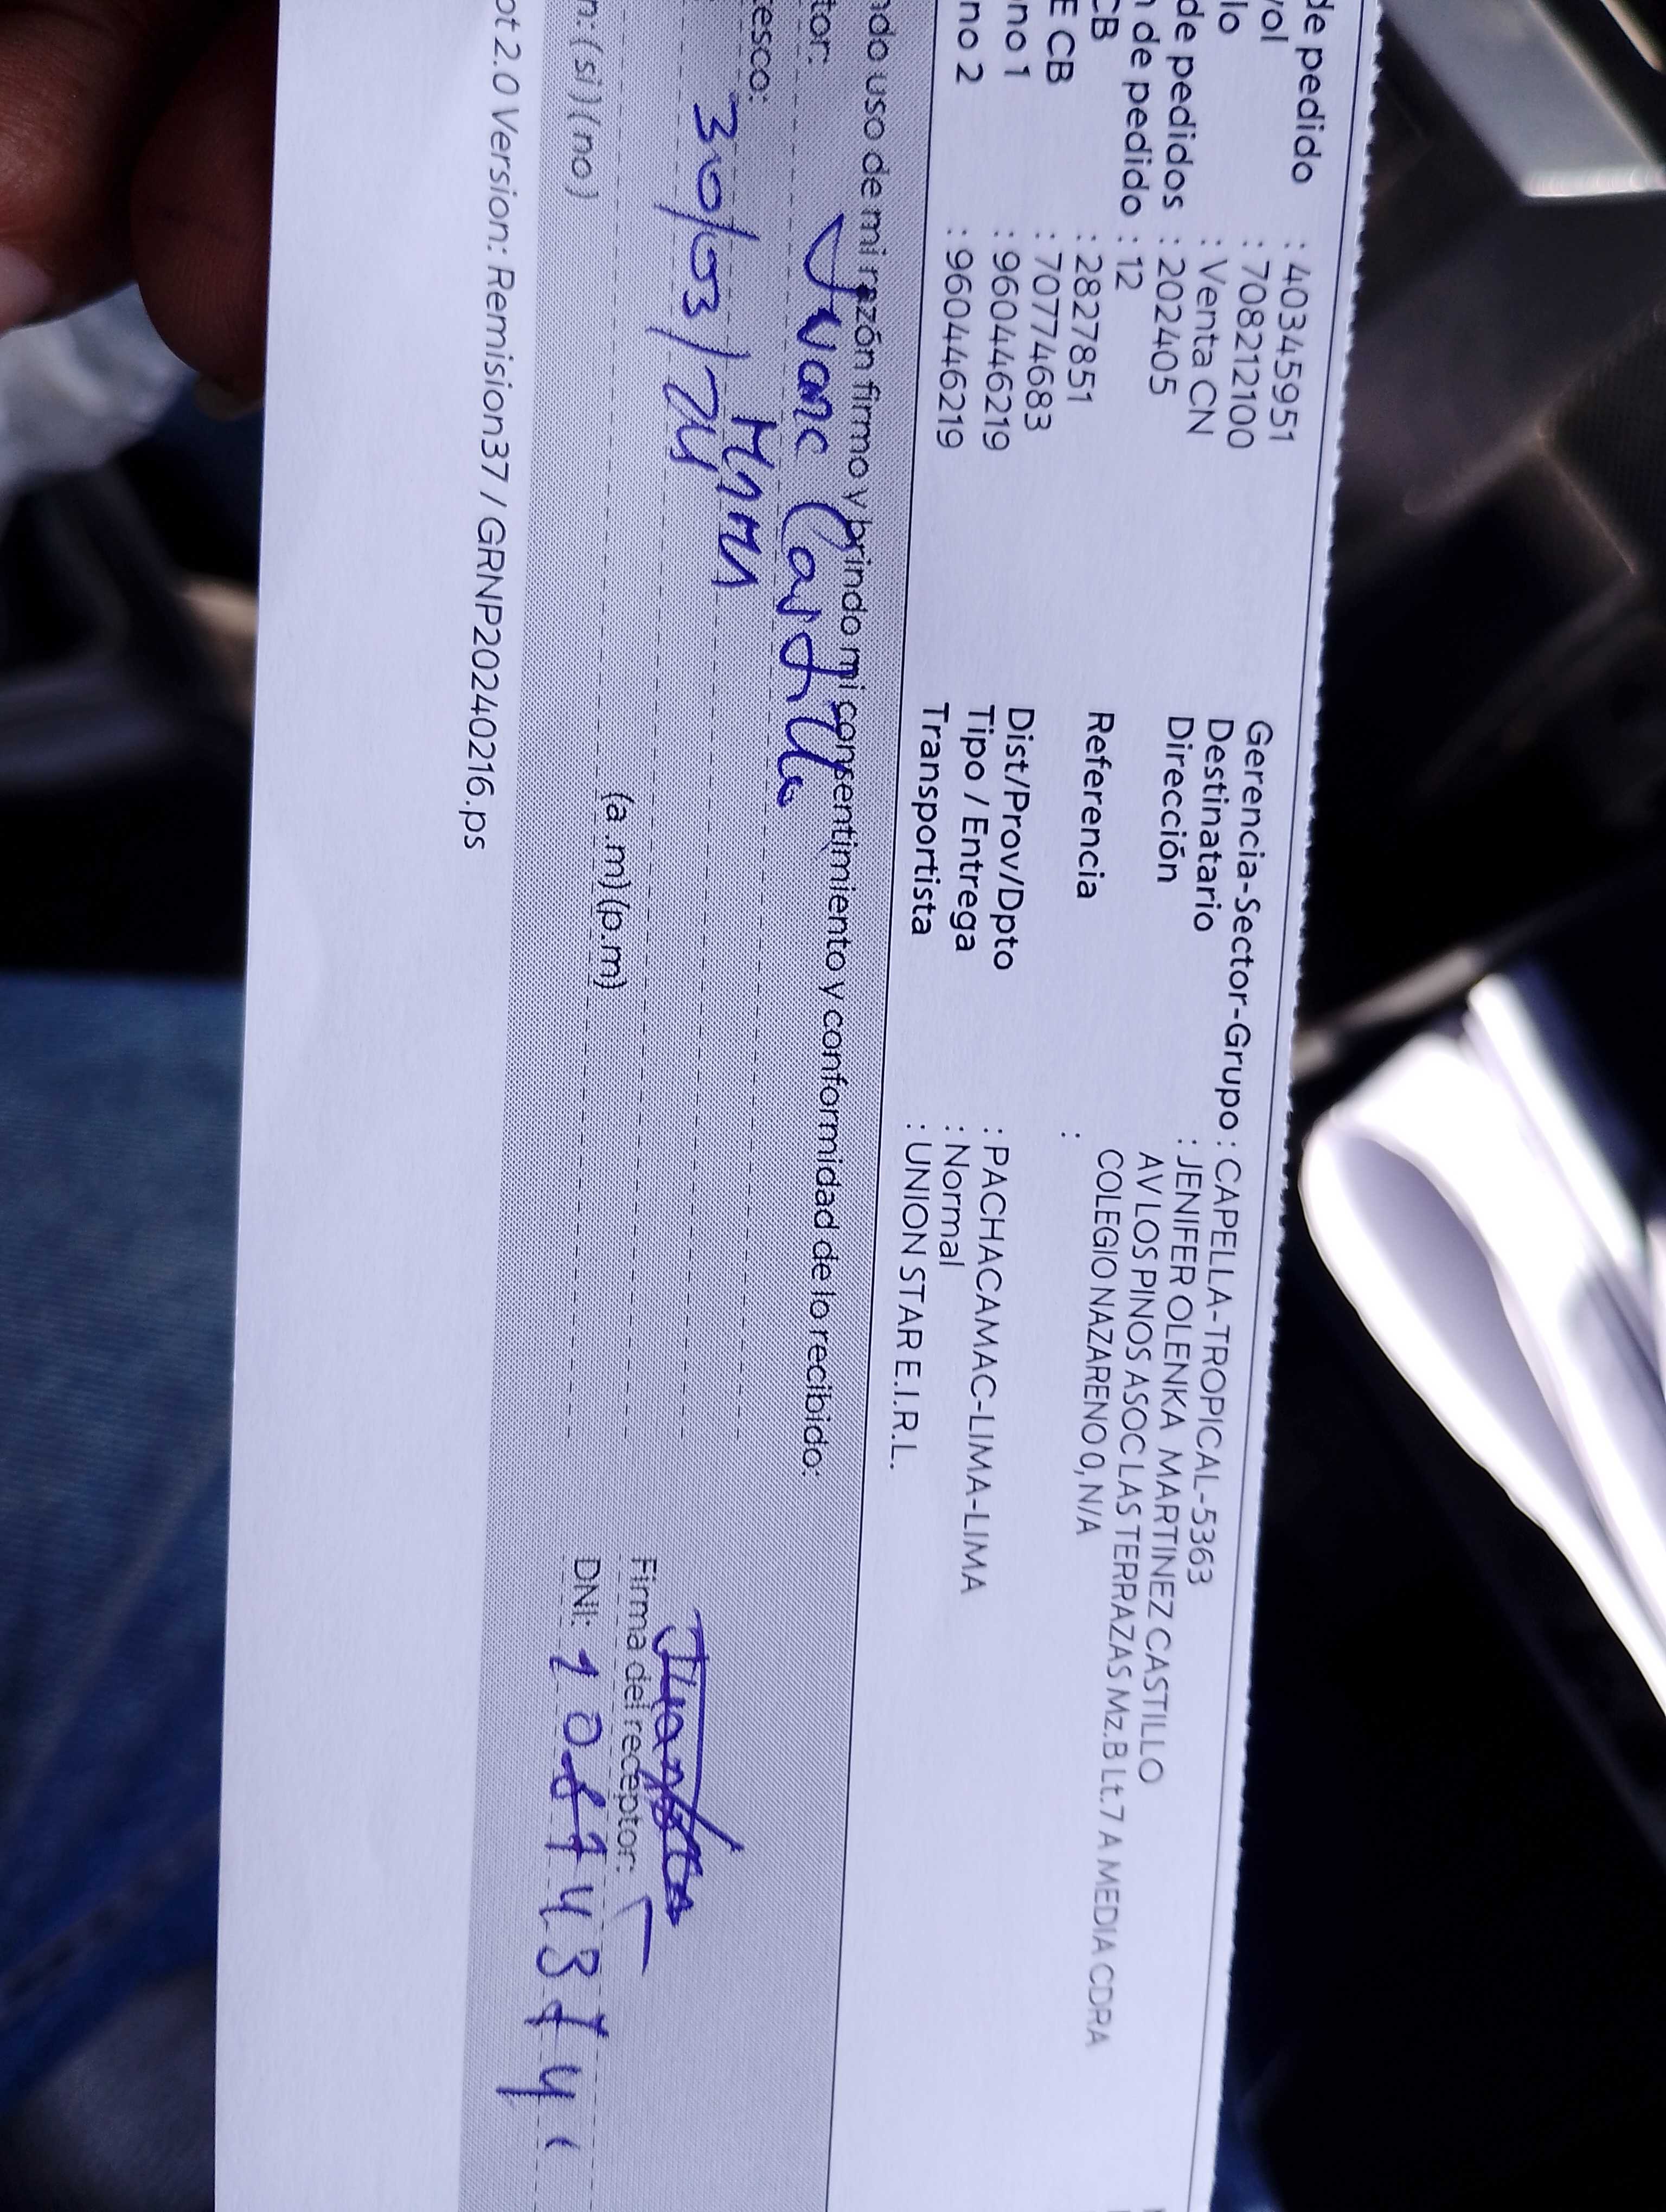 de pedido : 403459951
vol : 708212100
lo : Venta CN
de pedidos : 202405
n de pedido : 12
CB : 2827851
E CB : 70774683
no 1 : 960446219
no 2 : 960446219
Gerencia-Sector-Grupo : CAPELLA-TROPICAL-5363
Destinatario : JENIFER OLENKA MARTINEZ CASTILLO
Dirección AV LOS PINOS ASOC LAS TERRAZAS Mz.B Lt.7 A MEDIA CDRA
COLEGIO NAZARENO 0, N/A
Referencia :
Dist/Prov/Dpto : PACHACAMAC-LIMA-LIMA
Tipo / Entrega : Normal
Transportista : UNION STAR E.I.R.L.
ndo uso de mi razón firmo y brindo mi consentimiento y conformidad de lo recibido:
tor: Juana Castillo
esco:
30/03/24
(a .m) (p.m)
n: (si) (no)
Firma del receptor:
DNI:
ot 2.0 Version: Remision37 / GRNP20240216.ps